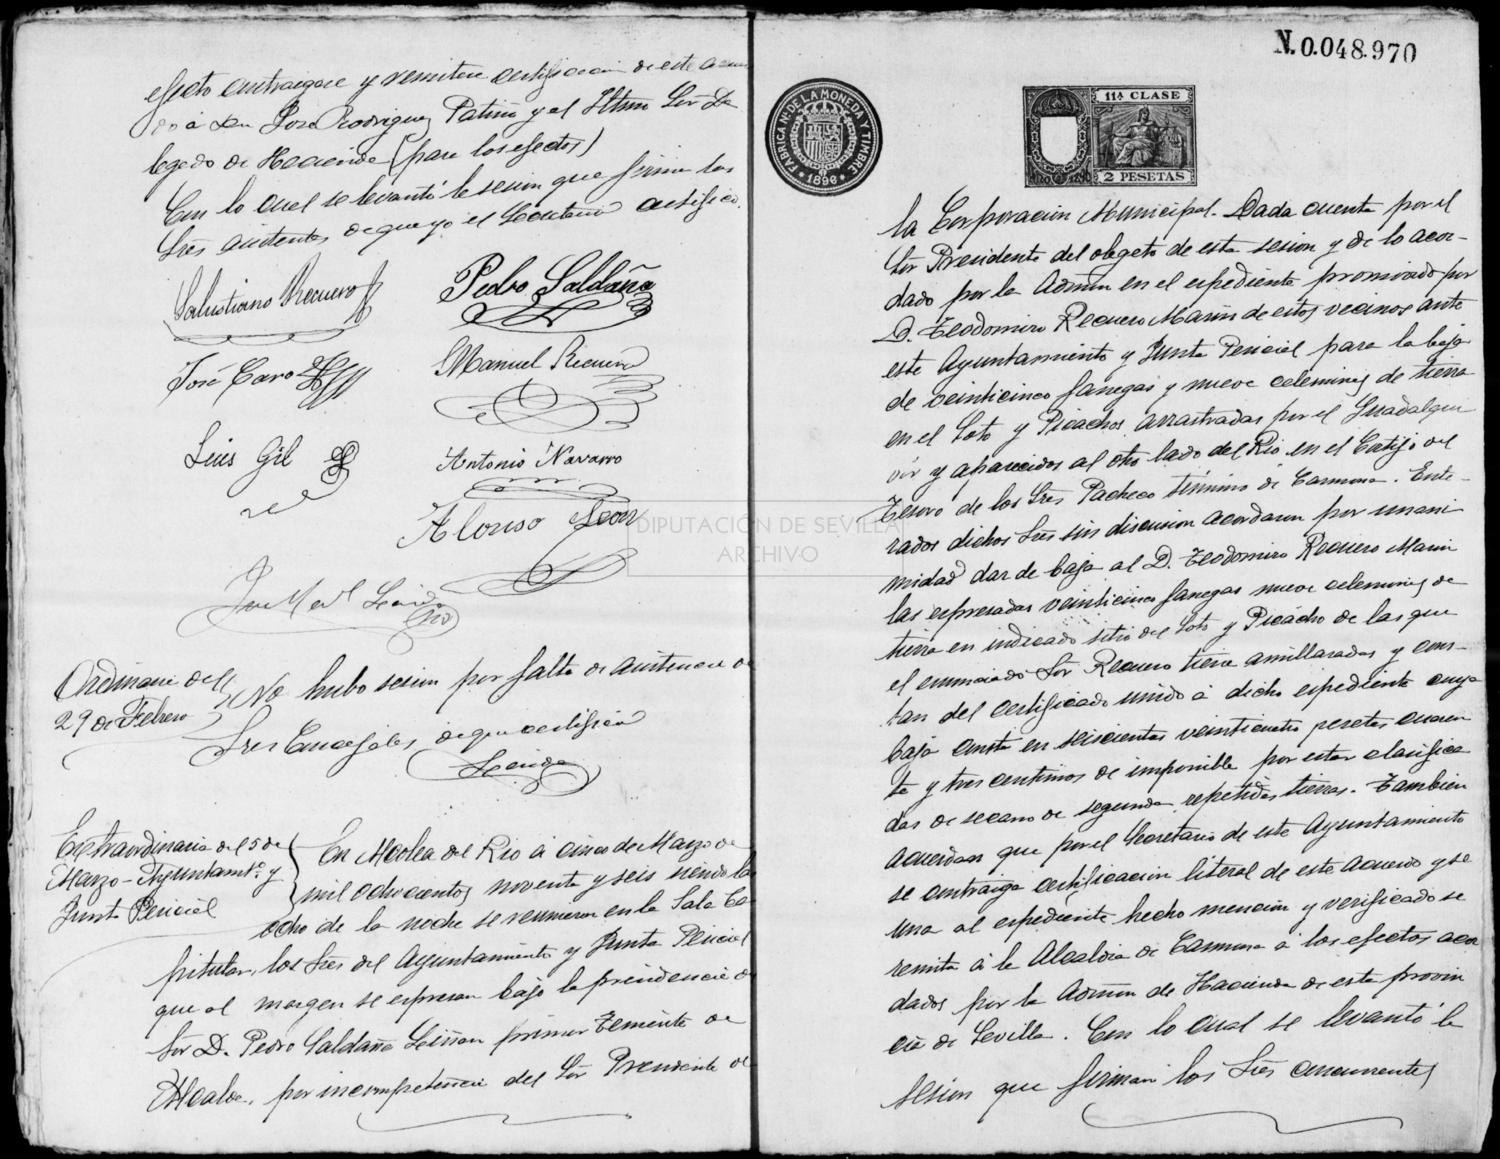 efecto contraigase y remitese certificacion de este acuer
do á Don Jose Rodriguez Patiño y al Iltmo Sor De
legado de Hacienda (para los efectos)
Con lo cual se levantó la sesion que firman los
Sres asistentes de que yo el Secretario certifico.
Salustiano Recuero
Pedro Saldaña
José Caro
Manuel Recuero
Luis Gil
Antonio Navarro
Alonso León
Ordinaria del
29 de Febrero
No hubo sesion por falta de asistencia de
Sres Concejales de que certifico
Extraordinaria del 5 de
Marzo - Ayuntamto. y
Junta Pericial
En Alcolea del Rio á cinco de Marzo de
mil ochocientos noventa y seis siendo la
ocho de la noche se reunieron en la Sala Ca
pitular, los Sres del Ayuntamiento y Junta Pericial
que al margen se espresan bajo la presidencia de
Sor D. Pedro Saldaña primer Teniente de
Alcalde, por incompetencia del Sor Presidente de
N.0.048.970
FABRICA Nal. DE LA MONEDA Y TIMBRE
1896
11ª CLASE
2 PESETAS
la Corporacion Municipal. Dada cuenta por el
Sor Presidente del obgeto de esta sesion y de lo acor-
dado por la Admon en el espediente promovido por
D. Teodomiro Recuero Marin de estos vecinos ante
este Ayuntamiento y Junta Pericial para la baja
de veinticinco fanegas y nueve celemines de tierra
en el Soto y Picachos arrastradas por el Guadalqui
vir y aparecidos al otro lado del Rio en el Cortijo del
Tesoro de los Sres Pacheco término de Carmona. Ente-
rados dichos Sres sin discusion acordaron por unani
midad dar de baja al D. Teodomiro Recuero Marin
las espresadas veinticinco fanegas nueve celemines de
tierra en indicado sitio del Soto y Picacho de las que
el enunciado Sor Recuero tiene amillaradas y cons-
tan del certificado unido á dicho espediente cuya
baja consta en seiscientas veinticuatro pesetas cuaren
ta y tres centimos de imponible por estar clasifica
das de secano de segunda repetidas tierras. Tambien
acuerdan que por el Secretario de este Ayuntamiento
se contraiga certificacion literal de este acuerdo y se
una al espediente hecho mencion y verificado se
remita á la Alcaldia de Carmona á los efectos acor
dados por la Admon de Hacienda de esta provin
cia de Sevilla. Con lo cual se levantó la
sesion que firman los Sres concurrentes
DIPUTACIÓN DE SEVILLA
ARCHIVO